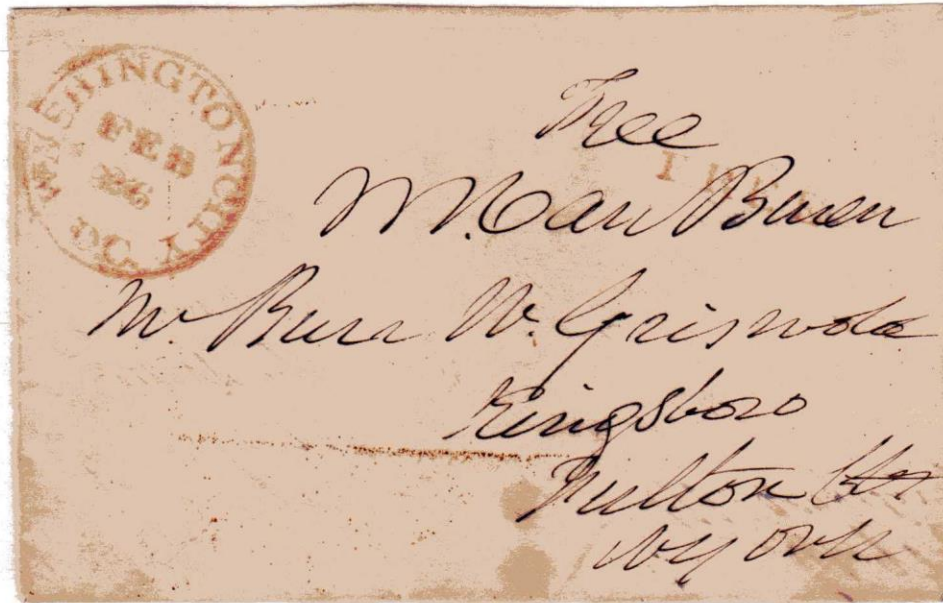 WASHINGTON CITY D.C.
FEB
26
Free
M. Van Buren
Mr Burr W. Griswold
Kingsboro
Fulton
N York